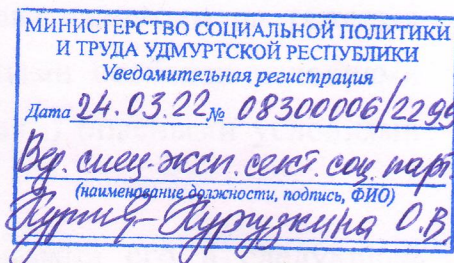 МИНИСТЕРСТВО СОЦИАЛЬНОЙ ПОЛИТИКИ
И ТРУДА УДМУРТСКОЙ РЕСПУБЛИКИ
Уведомительная регистрация
Дата 24.03.22 № 08300006/2299
Вед. спец-эксп. сект. соц. парт.
(наименование должности, подпись, ФИО)
Кургузкина О.В.